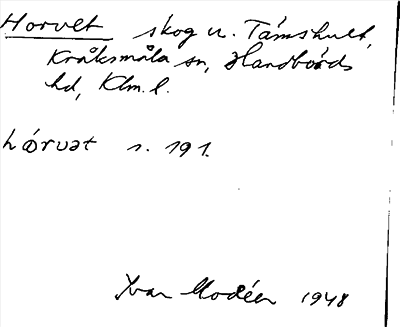 Horvet skog u. Tämshult,
Kråksmåla sn, Handbörds
hd, Klm. l.
hǿrvət s. 191.
Ivar Modéer 1948